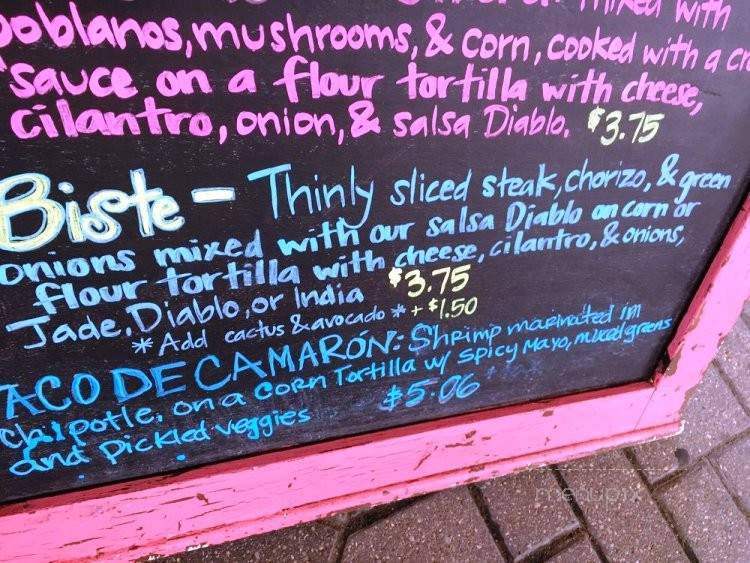 mixed with
poblanos, mushrooms, & corn, cooked with a
sauce on a flour tortilla with cheese,
cilantro, onion, & salsa Diablo. $3.75
Biste - Thinly sliced steak, chorizo, & green
onions mixed with our salsa Diablo on corn or
flour tortilla with cheese, cilantro, & onions,
Jade, Diablo, or India $3.75
*Add cactus & avocado * + $1.50
ACO DE CAMARÓN: Shrimp marinated in
Chipotle, on a corn Tortilla w/ spicy Mayo, mixed greens
and pickled veggies $5.06
menupix